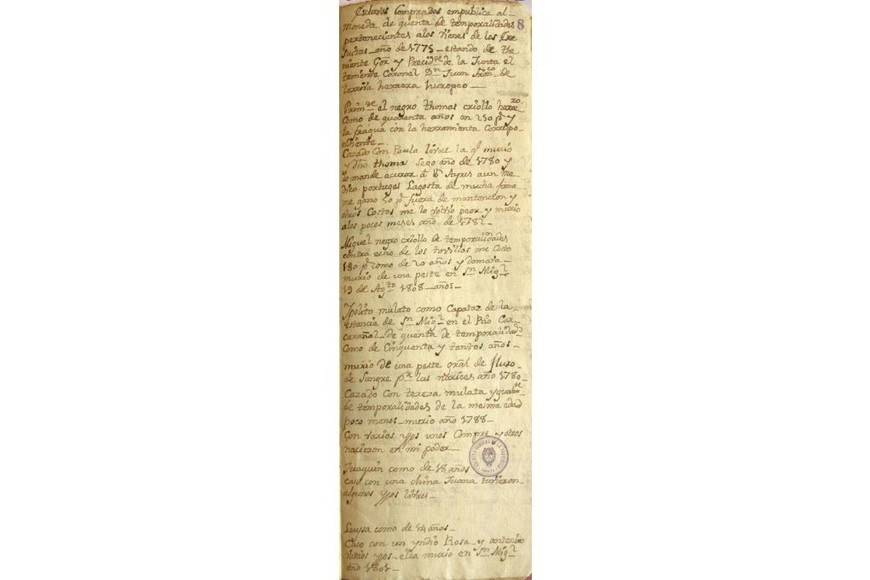 Esclavos Comprados en publica al-
moneda de quenta de temporalidades
8
pertenecientes a los vienes de los Ex-
Jesuitas año de 1775 estando de the-
niente Gor y Precidte de la Junta el
teniente Coronel Dn Juan Franco de
larrica herrera huropeo
Primte el negro thomas criollo herrero
Como de quarenta años en 250 ps y
la fragua con la herramienta Correspo-
ndiente
Cazado con Paula libre la ql murio
y dho thoma sego año de 1780 y
lo mande acurar a Bs Ayres a un me-
dico portuges Lagosta de mucha fama
me gano 50 ps fuera de mantencion y
otros Costos me lo volvio peor y murio
a los pocos meses año de 178
Miguel negro criollo de temporalidades
contra echo de los tovillos me Costo
180 ps como de 20 años y
murio de una peste en Sn Migl
19 de Agto 1808 años
Ypolito mulato como Capataz de la
estancia de Sn Migl en el Rio Car-
carañal de quenta de temporalidads
Como de Cinquenta y tantos años
murio de una peste gral de fluxo
de Sangre pr las narices año 1780
Cazado con tereza mulata
de temporalidades de la mesma edad
poco menos murio año 1788
Con varios yjos unos Compre y otros
nacieron en mi poder
Juaquin como de 18 años
caso con una china Juana tubieron
algunos yjos libres
Luysa como de años
Caso con un yndio Rosa y
varios yjos ella murio en Sn Migl
año 180